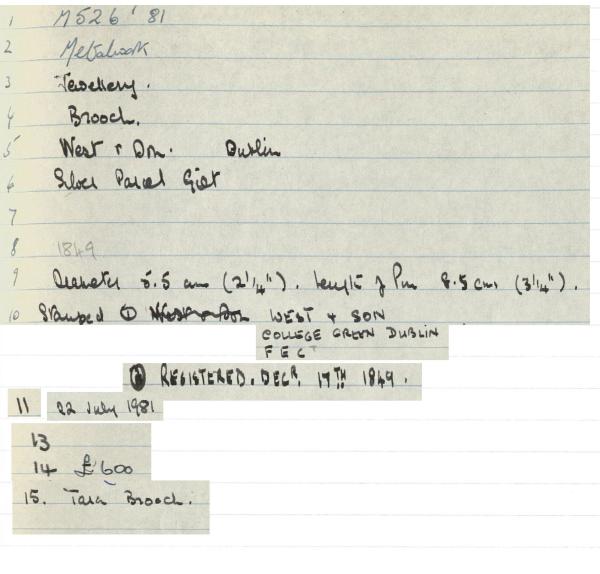 1 M526'81
2 Metalwork
3 Jewellery.
4 Brooch.
5 West & Son. Dublin
6 Silver Parcel Gilt
7
8 1849
9 Diameter 5.5 cms (2 1/4"). Length of Pin 8.5 cms (3 1/4").
10 Stamped ① WEST & SON
COLLEGE GREEN DUBLIN
FECT
② REGISTERED. DECR. 17TH 1849.
11 22 July 1981
13
14 £600
15. Tara Brooch.